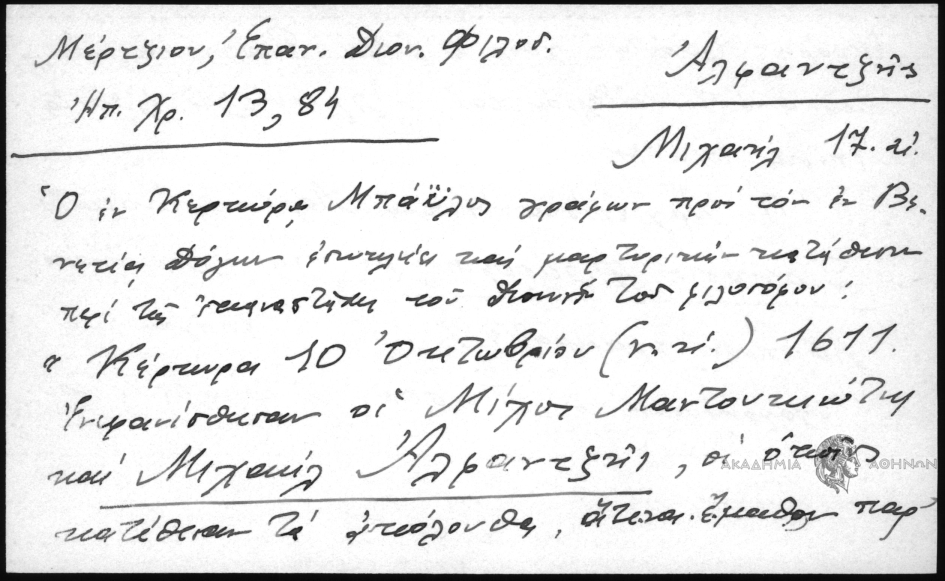 Μέρτζιου, Ἐπαν. Διον. Φιλοσ.
Ἠπ. Χρ. 13, 84
Ἀλφαντζῆς
Μιχαήλ 17. αἰ.
Ὁ ἐν Κερκύρᾳ Μπάϋλος γράφων πρός τόν ἐν Βε-
νετίᾳ Δόγην καί μαρτυρικήν κατάθεσιν
περί τῆς ἐπαναστάσεως τοῦ Διονυσίου τοῦ φιλοσόφου:
« Κέρκυρα 10 Ὀκτωβρίου (ν.η.) 1611.
Ἐνεφανίσθησαν οἱ Μίλος Μαντουκιώτης
καί Μιχαήλ Ἀλφαντζῆς, οἱ ὁποῖοι
κατέθεσαν τά ἀκόλουθα, ἅτινα ἔμαθον παρ'
ΑΚΑΔΗΜΙΑ ΑΘΗΝΩΝ